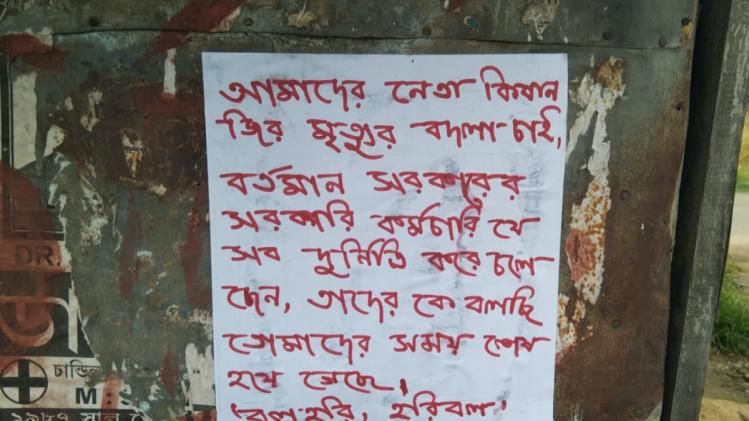 আমাদের নেতা কিষান
জির মৃত্যুর বদলা চাই,
বর্তমান সরকারের
সরকারি কর্মচারি যে
সব দুর্নিতি করে চলে-
ছেন, তাদের কে বলছি
তোমাদের সময় শেষ
হয়ে গেছে,
'বল হরি, হরিবল'
DR.
চান্ডিল
M:S
১৯৮৭ সাল